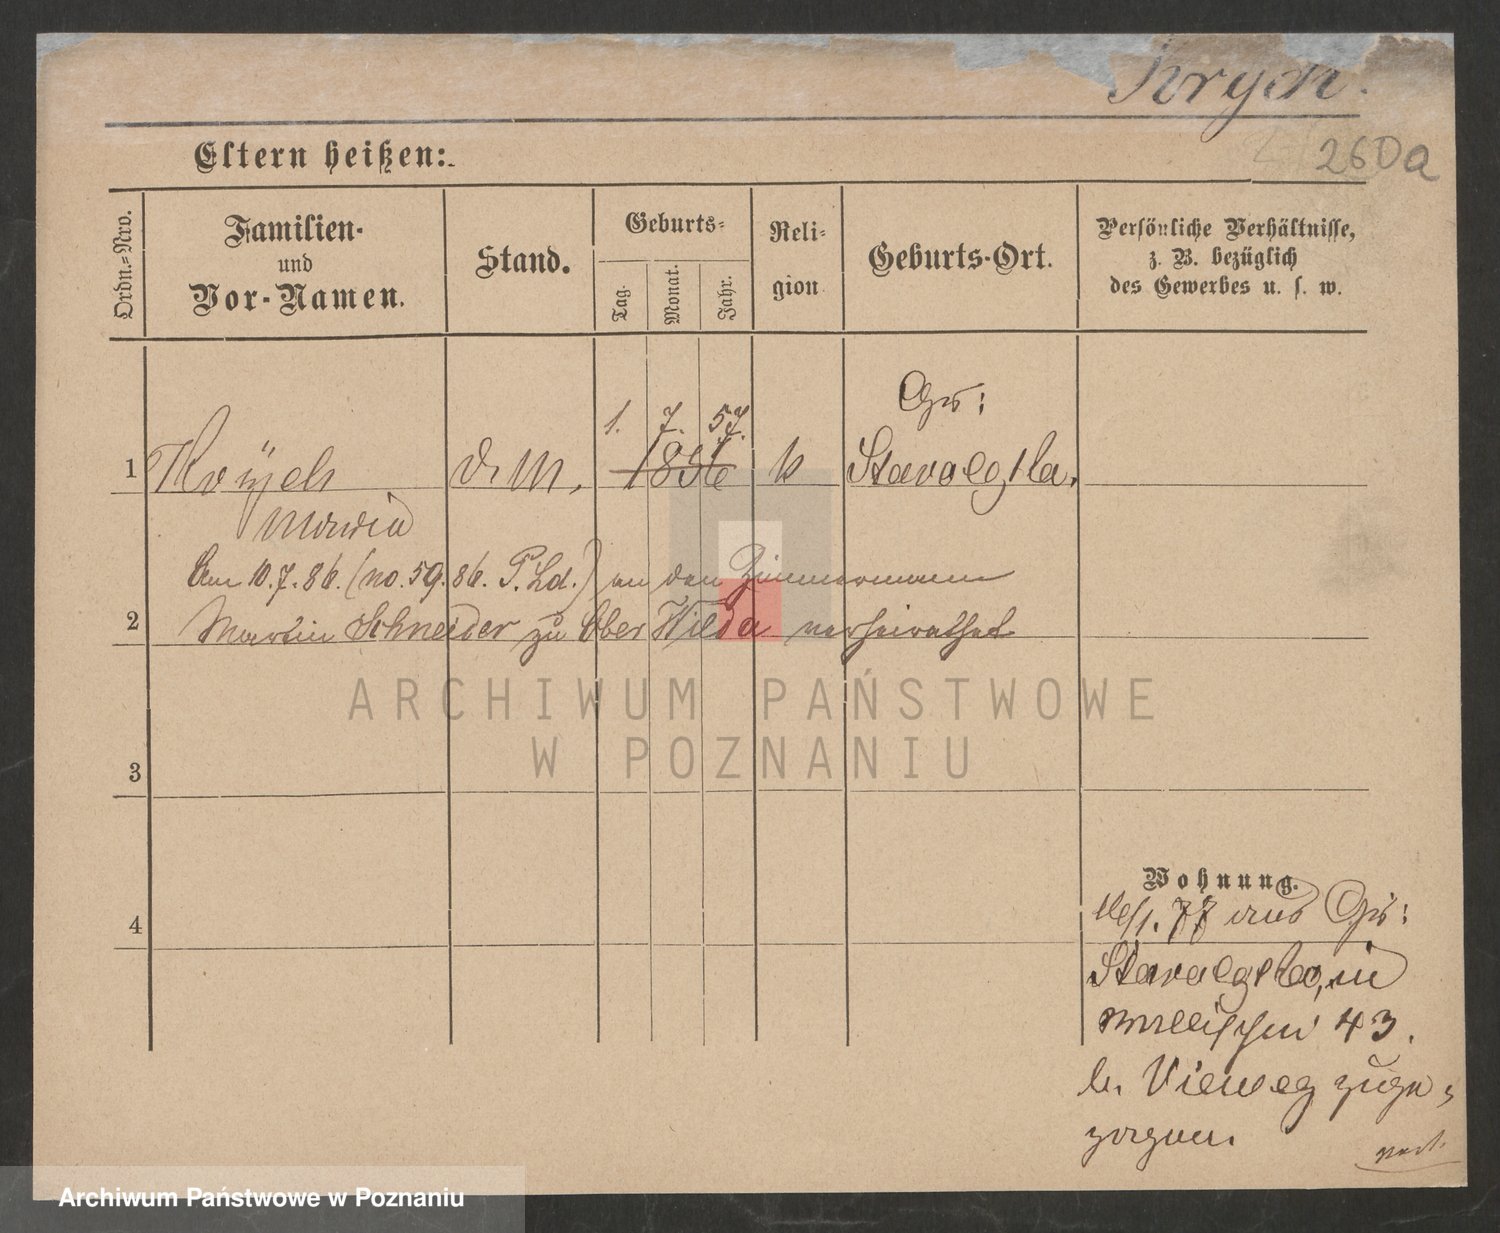 Krych.
260a
Eltern heißen:
Ordn.-Nro.
Familien-
und
Vor-Namen.
Stand.
Geburts-
Tag.
Monat.
Jahr.
Reli-
gion
Geburts-Ort.
Persönliche Verhältnisse,
z. B. bezüglich
des Gewerbes u. s. w.
1. 7. 57.
1 d. M. 1856 k
Maria
Am 10.7.86. (no. 59. 86. P. Ld.) an den Zimmermann
2 Martin Schneider zu Ober Wilda verheirathet
3
4
Wohnung.
77 aus
in
Wallischei 43.
b. Vieweg zuge-
zogen.
ARCHIWUM PAŃSTWOWE
W POZNANIU
Archiwum Państwowe w Poznaniu